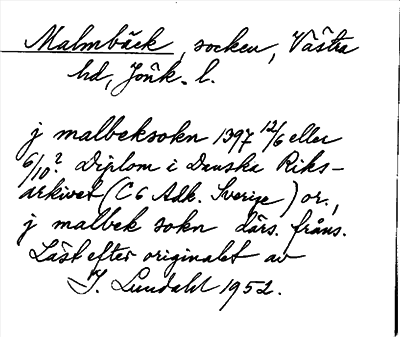 Malmbäck, socken, Västra
hd, Jönk. l.
j malbeksokn 1397 12/6 eller
6/10? Diplom i Danska Riks-
arkivet (C6 Adk. Sverige) or.,
j malbek sokn därs. frâns.
Läst efter originalet av
I. Lundahl 1952.